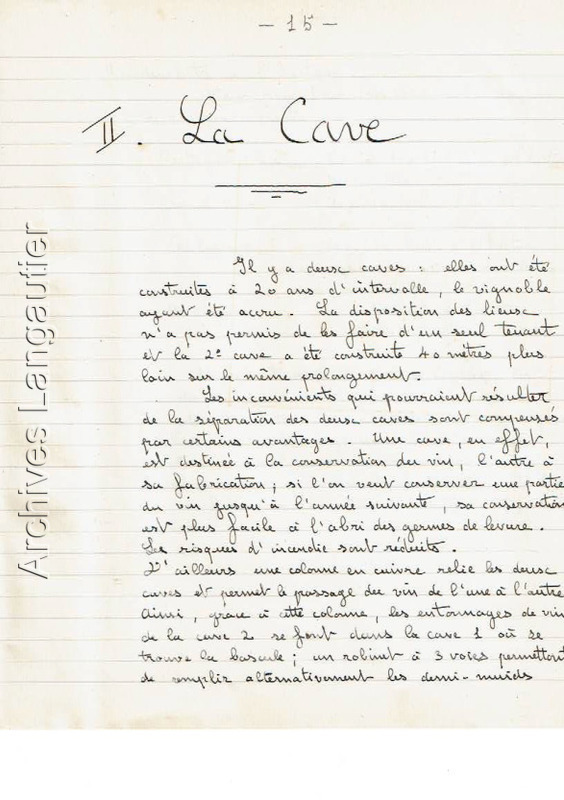 — 15 —
II. La Cave
Archives Langautier
Il y a deux caves : elles ont été
construites à 20 ans d'intervalle, le vignoble
ayant été accru. La disposition des lieux
n'a pas permis de les faire d'un seul tenant
et la 2e cave a été construite 40 mètres plus
loin sur le même prolongement.
Les inconvénients qui pourraient résulter
de la séparation des deux caves sont compensés
par certains avantages. Une cave, en effet,
est destinée à la conservation du vin, l'autre à
sa fabrication ; si l'on veut conserver une partie
du vin jusqu'à l'année suivante, sa conservation
est plus facile à l'abri des germes de levure.
Les risques d'incendie sont réduits.
D'ailleurs une colonne en cuivre relie les deux
caves et permet le passage du vin de l'une à l'autre
Ainsi, grace à cette colonne, les entonnages de vin
de la cave 2 se font dans la cave 1 où se
trouve la bascule ; un robinet à 3 voies permettant
de remplir alternativement les demi-muids